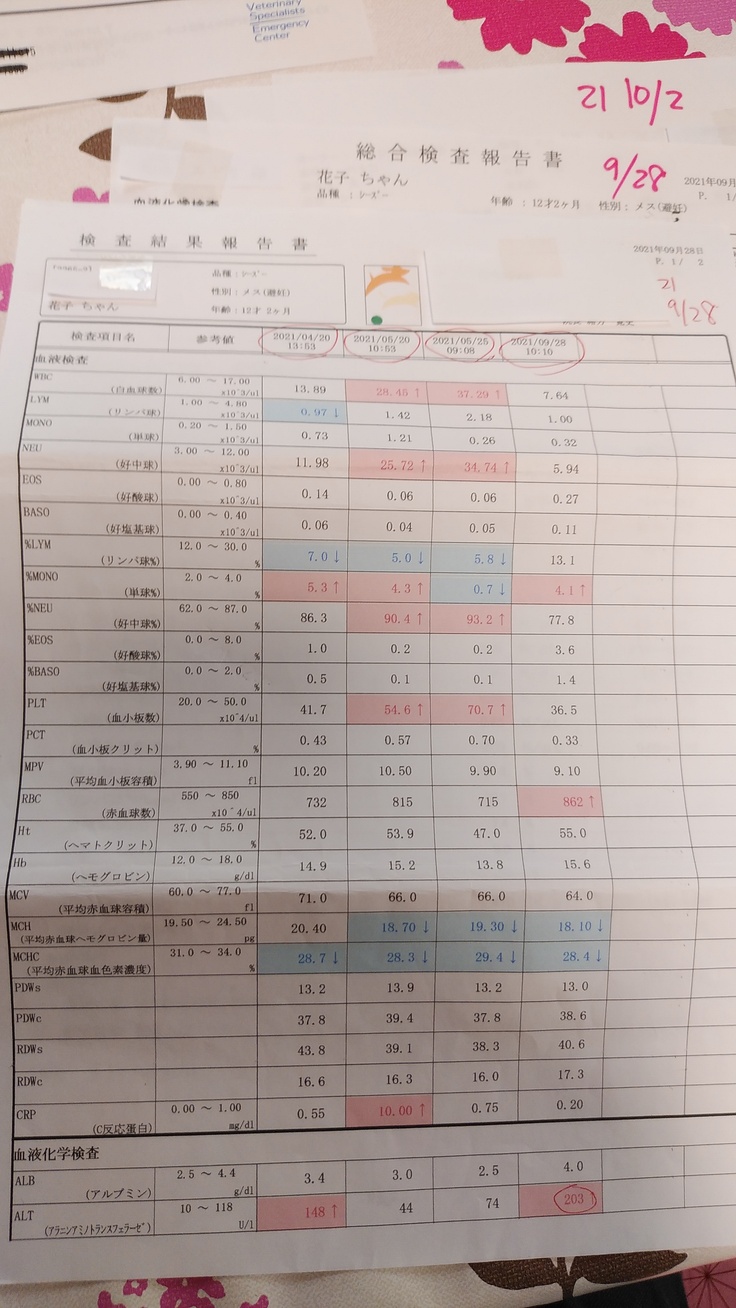 Veterinary
Specialists
Emergency
Center
21 10/2
総合検査報告書
9/28
花子 ちゃん
品種：シーズー
年齢：12才2ヶ月 性別：メス(避妊)
2021年09月
P. 1/
血液化学検査
検査結果報告書
2021年09月28日
P. 1 / 2
21
9/28
品種：シーズー
性別：メス(避妊)
花子 ちゃん
年齢：12才 2ヶ月
検査項目名 参考値 2021/04/20 13:53 2021/05/20 10:53 2021/05/25 09:08 2021/09/28 10:10
血液検査
WBC (白血球数) 6.00 ～ 17.00 x10^3/ul 13.89 28.45 ↑ 37.29 ↑ 7.64
LYM (リンパ球) 1.00 ～ 4.80 x10^3/ul 0.97 ↓ 1.42 2.18 1.00
MONO (単球) 0.20 ～ 1.50 x10^3/ul 0.73 1.21 0.26 0.32
NEU (好中球) 3.00 ～ 12.00 x10^3/ul 11.98 25.72 ↑ 34.74 ↑ 5.94
EOS (好酸球) 0.00 ～ 0.80 x10^3/ul 0.14 0.06 0.06 0.27
BASO (好塩基球) 0.00 ～ 0.40 x10^3/ul 0.06 0.04 0.05 0.11
%LYM (リンパ球%) 12.0 ～ 30.0 % 7.0 ↓ 5.0 ↓ 5.8 ↓ 13.1
%MONO (単球%) 2.0 ～ 4.0 % 5.3 ↑ 4.3 ↑ 0.7 ↓ 4.1 ↑
%NEU (好中球%) 62.0 ～ 87.0 % 86.3 90.4 ↑ 93.2 ↑ 77.8
%EOS (好酸球%) 0.0 ～ 8.0 % 1.0 0.2 0.2 3.6
%BASO (好塩基球%) 0.0 ～ 2.0 % 0.5 0.1 0.1 1.4
PLT (血小板数) 20.0 ～ 50.0 x10^4/ul 41.7 54.6 ↑ 70.7 ↑ 36.5
PCT (血小板クリット) % 0.43 0.57 0.70 0.33
MPV (平均血小板容積) 3.90 ～ 11.10 fl 10.20 10.50 9.90 9.10
RBC (赤血球数) 550 ～ 850 x10^4/ul 732 815 715 862 ↑
Ht (ヘマトクリット) 37.0 ～ 55.0 % 52.0 53.9 47.0 55.0
Hb (ヘモグロビン) 12.0 ～ 18.0 g/dl 14.9 15.2 13.8 15.6
MCV (平均赤血球容積) 60.0 ～ 77.0 fl 71.0 66.0 66.0 64.0
MCH (平均赤血球ヘモグロビン量) 19.50 ～ 24.50 pg 20.40 18.70 ↓ 19.30 ↓ 18.10 ↓
MCHC (平均赤血球血色素濃度) 31.0 ～ 34.0 % 28.7 ↓ 28.3 ↓ 29.4 ↓ 28.4 ↓
PDWs 13.2 13.9 13.2 13.0
PDWc 37.8 39.4 37.8 38.6
RDWs 43.8 39.1 38.3 40.6
RDWc 16.6 16.3 16.0 17.3
CRP (C反応蛋白) 0.00 ～ 1.00 mg/dl 0.55 10.00 ↑ 0.75 0.20
血液化学検査
ALB (アルブミン) 2.5 ～ 4.4 g/dl 3.4 3.0 2.5 4.0
ALT (アラニンアミノトランスフェラーゼ) 10 ～ 118 U/l 148 ↑ 44 74 203 ↑